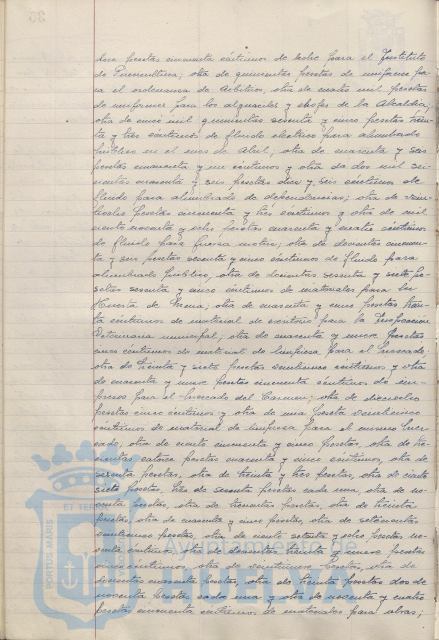 doce pesetas cincuenta céntimos de leche para el Instituto
de Puericultura; otra de quinientas pesetas de uniforme pa-
ra el ordenanza de Arbitrios, otra de cuatro mil pesetas
de uniformes para los alguaciles y chofer de la Alcaldia,
otra de once mil quinientas sesenta y cinco pesetas trein-
ta y tres céntimos de fluido electrico para alumbrado
público en el mes de Abril, otra de cuarenta y seis
pesetas cincuenta y un céntimos y otra de dos mil
cuarenta y seis pesetas diez y seis céntimos de
fluido para alumbrado de dependencias; otra de vein-
pesetas cincuenta y tres céntimos y otra de mil
ciento noventa y ocho pesetas cuarenta y cuatro céntimos
de fluido para fuerza motriz; otra de doscientas cincuen-
ta y seis pesetas sesenta y cinco céntimos de fluido para
alumbrado público; otra de doscientas sesenta y siete pe-
setas sesenta y cinco céntimos de materiales para la
Huerta de otra de cuarenta y cinco pesetas trein-
ta céntimos de material de escritorio para la Inspección
Veterinaria municipal; otra de cuarenta y nueve pesetas
céntimos de material de limpieza para el mercado;
otra de treinta y siete pesetas veinticinco céntimos y otra
de cincuenta y nueve pesetas cincuenta céntimos de im-
presos para el Mercado del Carmen; otra de dieciocho
pesetas cinco céntimos y otra de una peseta veinticinco
céntimos de material de limpieza para el mismo Mer-
cado; otra de ciento cincuenta y cinco pesetas, otra de
catorce pesetas cuarenta y cinco céntimos, otra de
sesenta pesetas, otra de treinta y tres pesetas, otra de ciento
siete pesetas, tres de sesenta pesetas cada una, otra de no-
venta pesetas, otra de pesetas, otra de treinta
pesetas, otra de cuarenta y cinco pesetas, otra de setecientas
veinticinco pesetas, otra de ciento setenta y ocho pesetas no-
venta céntimos, otra de doscientas treinta y nueve pesetas
cinco céntimos, otra de veinticinco pesetas, otra de
doscientas cincuenta pesetas, otra de treinta pesetas dos de
noventa pesetas cada una y otra de noventa y cuatro
pesetas cincuenta céntimos de materiales para obras;
PORTUS MARIS
ET TER
Ayuntamiento de